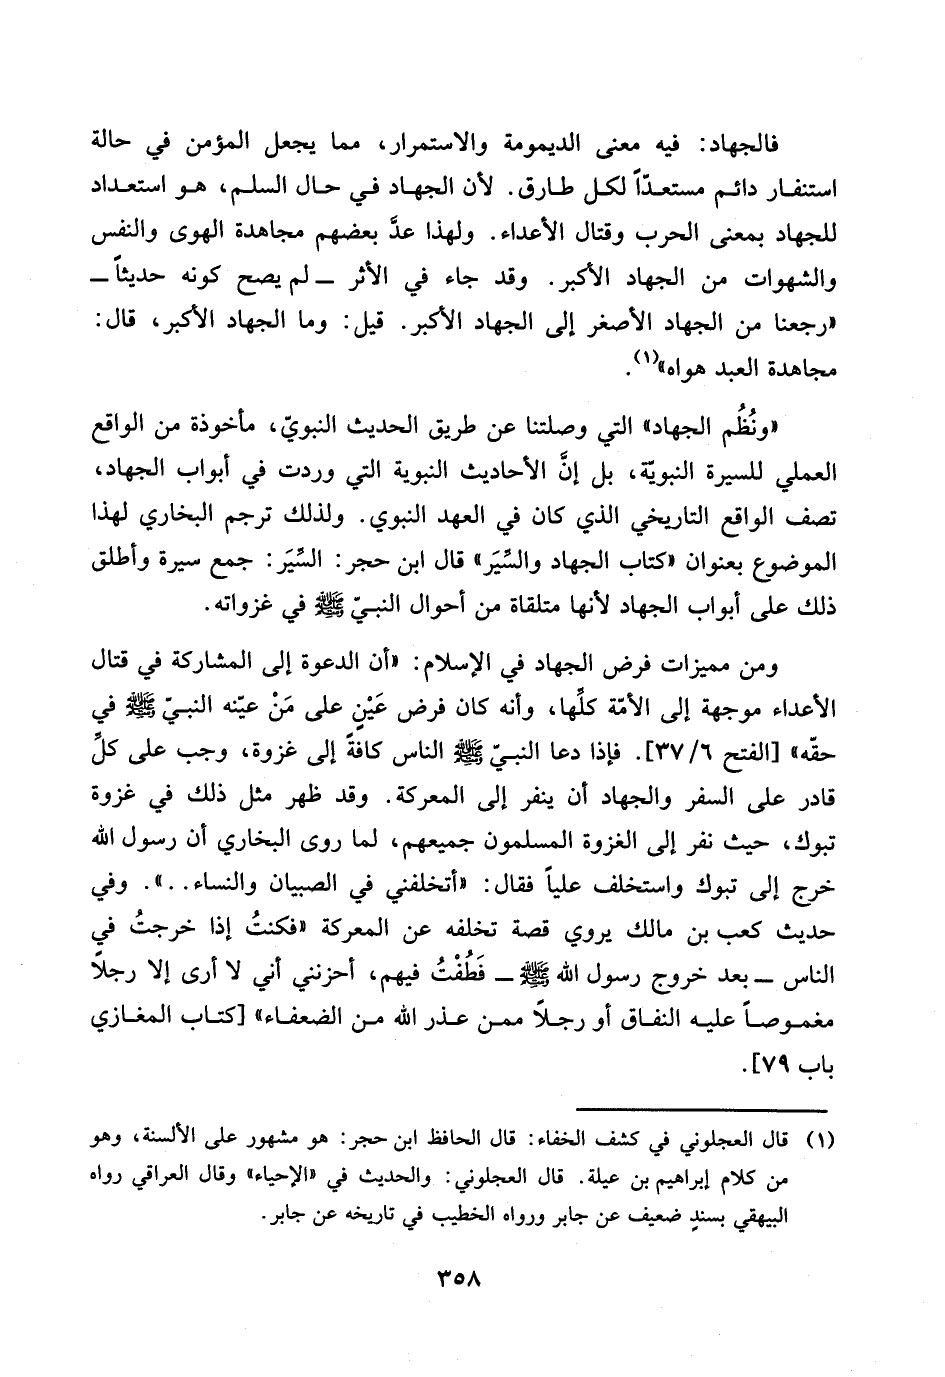 فالجهاد: فيه معنى الديمومة والاستمرار، مما يجعل المؤمن في حالة
استنفار دائم مستعدّاً لكل طارق. لأن الجهاد في حال السلم، هو استعداد
للجهاد بمعنى الحرب وقتال الأعداء. ولهذا عدَّ بعضهم مجاهدة الهوى والنفس
والشهوات من الجهاد الأكبر. وقد جاء في الأثر ــ لم يصح كونه حديثاً ــ
«رجعنا من الجهاد الأصغر إلى الجهاد الأكبر. قيل: وما الجهاد الأكبر، قال:
مجاهدة العبد هواه»(١).
«ونُظُم الجهاد» التي وصلتنا عن طريق الحديث النبويّ، مأخوذة من الواقع
العملي للسيرة النبويّة، بل إنَّ الأحاديث النبوية التي وردت في أبواب الجهاد،
تصف الواقع التاريخي الذي كان في العهد النبوي. ولذلك ترجم البخاري لهذا
الموضوع بعنوان «كتاب الجهاد والسِّيَر» قال ابن حجر: السِّيَر: جمع سيرة وأطلق
ذلك على أبواب الجهاد لأنها متلقاة من أحوال النبيّ ﷺ في غزواته.
ومن مميزات فرض الجهاد في الإسلام: «أن الدعوة إلى المشاركة في قتال
الأعداء موجهة إلى الأمّة كلِّها، وأنه كان فرض عَيْنٍ على مَنْ عيّنه النبيّ ﷺ في
حقّه» [الفتح ٣٧/٦]. فإذا دعا النبيّ ﷺ الناس كافةً إلى غزوة، وجب على كلِّ
قادر على السفر والجهاد أن ينفر إلى المعركة. وقد ظهر مثل ذلك في غزوة
تبوك، حيث نفر إلى الغزوة المسلمون جميعهم، لما روى البخاري أن رسول الله
خرج إلى تبوك واستخلف علياً فقال: «أتخلفني في الصبيان والنساء..». وفي
حديث كعب بن مالك يروي قصة تخلفه عن المعركة «فكنتُ إذا خرجتُ في
الناس ــ بعد خروج رسول الله ﷺ ــ فَطُفْتُ فيهم، أحزنني أني لا أرى إلا رجلاً
مغموصاً عليه النفاق أو رجلاً ممن عذر الله من الضعفاء» [كتاب المغازي
باب ٧٩].
(١) قال العجلوني في كشف الخفاء: قال الحافظ ابن حجر: هو مشهور على الألسنة، وهو
من كلام إبراهيم بن عيلة. قال العجلوني: والحديث في «الإحياء» وقال العراقي رواه
البيهقي بسندٍ ضعيف عن جابر ورواه الخطيب في تاريخه عن جابر.
٣٥٨